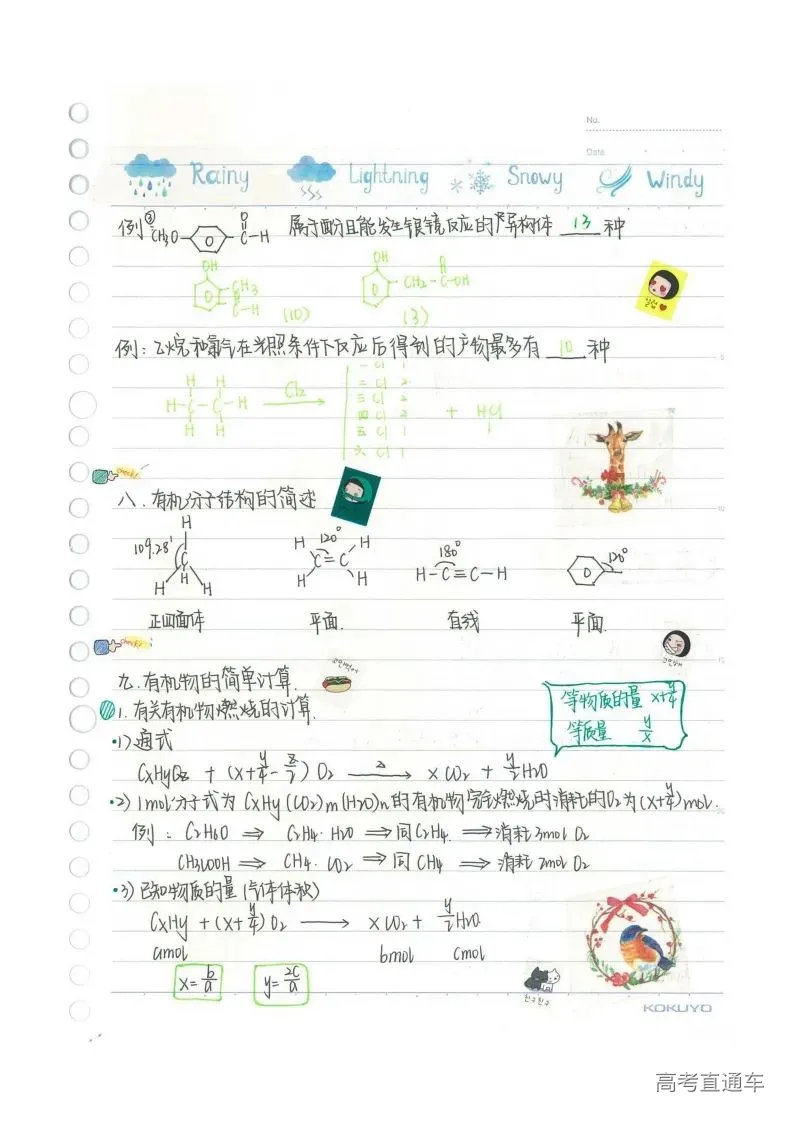 No.
Date
Rainy Lightning Snowy Windy
例② CH3O- -C-H 属于酚且能发生银镜反应的同分异构体 13 种
O
OH OH O
CH3 CH2-C-OH
C-H
(10) (3)
例：乙烷和氯气在光照条件下反应后得到的产物最多有 10 种
H H Cl2 一Cl 1
H-C-C-H 二Cl 2 + HCl
H H 三Cl 2 1
四Cl 2
五Cl 1
六Cl 1
check!
八.有机分子结构的简述
109.28' 120° 180° 120°
H H H H-C≡C-H
C C=C
H H H H H
正四面体 平面. 直线 平面.
check!
九.有机物的简单计算.
等物质的量 x+y/4
等质量 y/x
1.有关有机物燃烧的计算.
·1)通式
CxHyOz + (x+y/4-z/2) O2 → xCO2 + y/2H2O
·2) 1mol分子式为CxHy(CO2)m(H2O)n的有机物完全燃烧时消耗的O2为(x+y/4)mol.
例：C2H6O ⇒ C2H4·H2O ⇒同C2H4. ⇒消耗3mol O2
CH3COOH ⇒ CH4·CO2 ⇒同CH4 ⇒消耗2mol O2
·3)已知物质的量(气体体积)
CxHy + (x+y/4)O2 → xCO2 + y/2H2O
amol bmol cmol
x=b/a y=2c/a
친구친구
KOKUYO
高考直通车